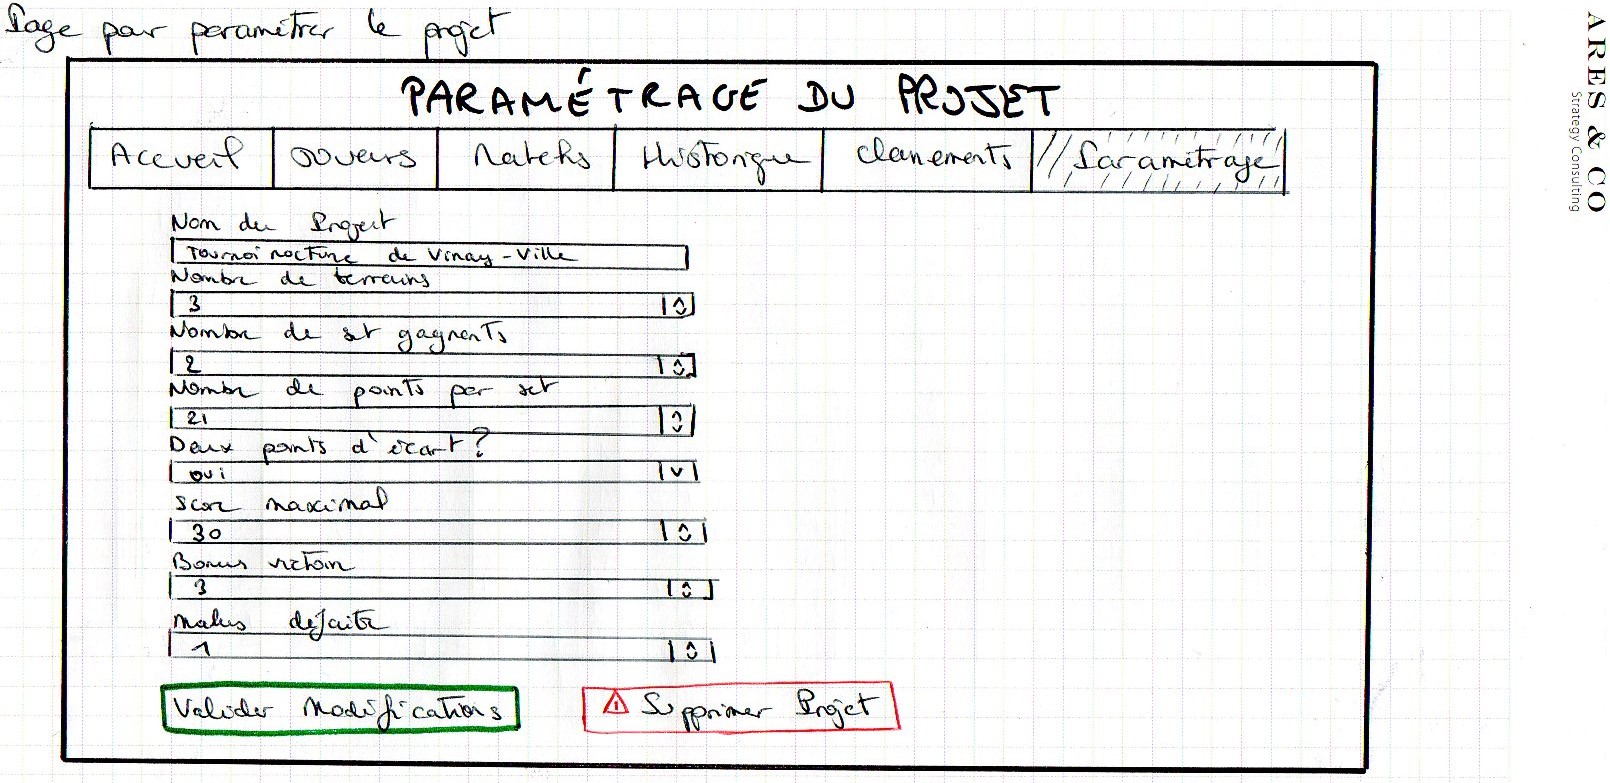 Page pour paramétrer le projet
PARAMÉTRAGE DU PROJET
Accueil Joueurs Matchs Historique Classements Paramétrage
Nom du Projet
Tournoi nocturne de Vinay-Ville
Nombre de terrains
3
Nombre de set gagnants
2
Nombre de points par set
21
Deux points d'écart?
oui
Score maximal
30
Bonus victoire
3
Malus défaite
1
Valider Modifications
Supprimer Projet
ARES & CO
Strategy Consulting